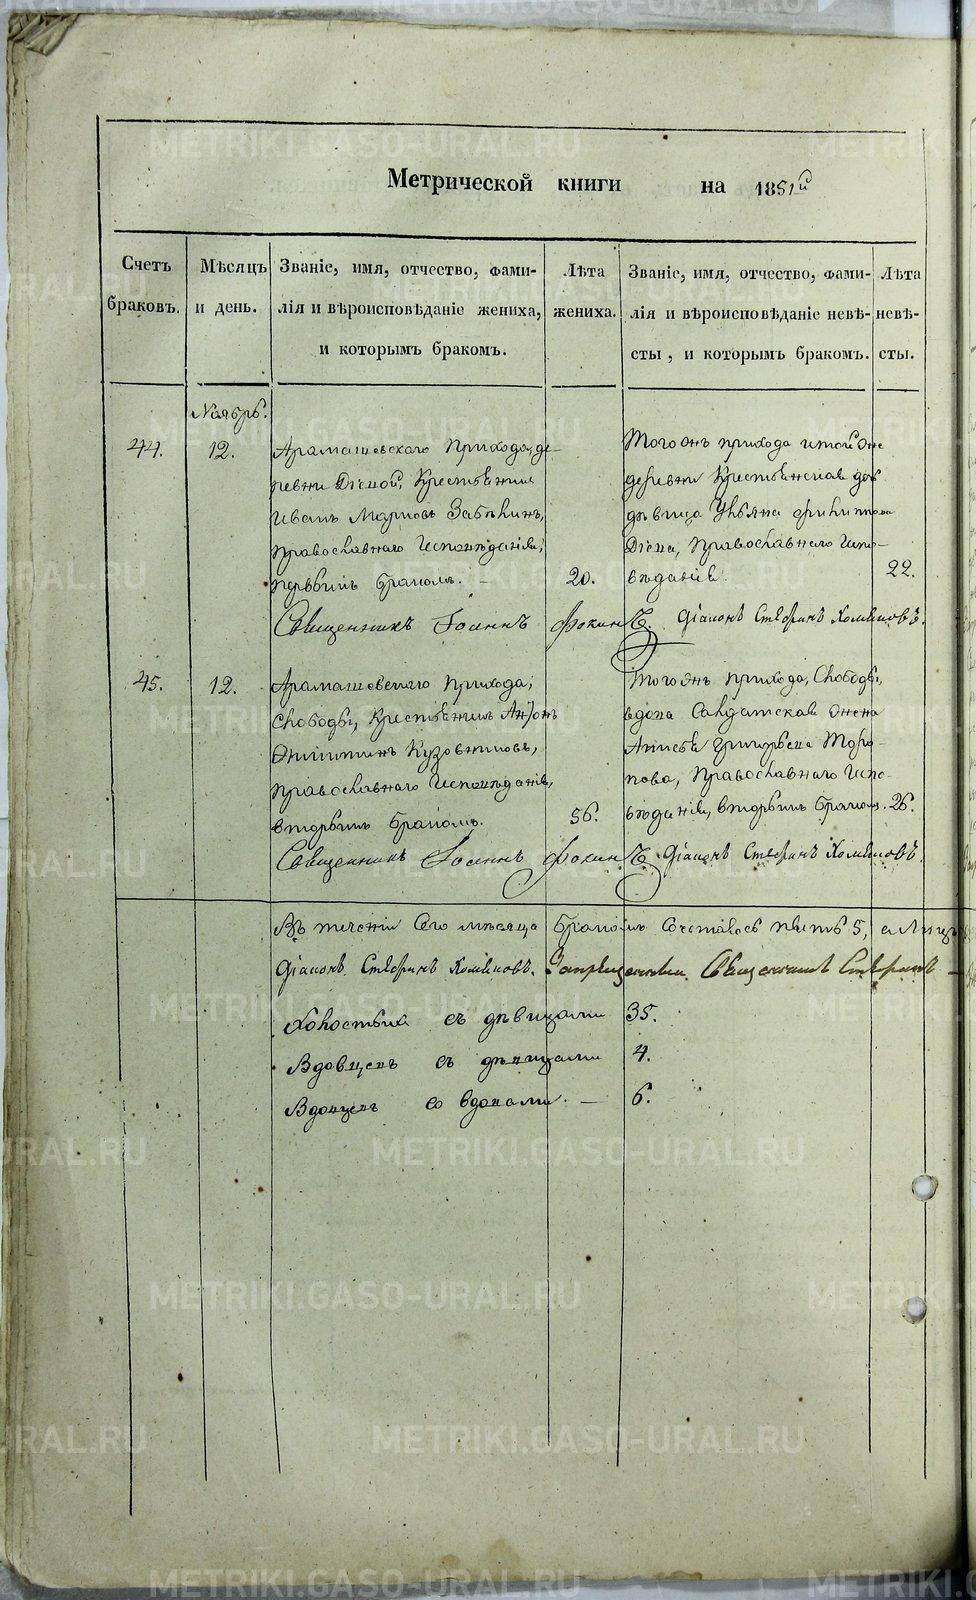 Метрической книги на 1851й
Счетъ браковъ.
Мѣсяцъ и день.
Званіе, имя, отчество, фами-
лія и вѣроисповѣданіе жениха,
и которымъ бракомъ.
Лѣта
жениха.
Званіе, имя, отчество, фами-
лія и вѣроисповѣданіе невѣ-
сты, и которымъ бракомъ.
Лѣта
невѣ-
сты.
Ноябрь.
44.
12.
Арамашевскаго прихода, де-
ревни Дѣевой, Крестьянинъ
Иванъ Марковъ Забѣлинъ,
православнаго исповѣданія,
первымъ бракомъ.
20.
Того жъ прихода и той же
деревни Крестьянская
дѣвица Ульяна Филиппова
Дѣева, Православнаго Испо-
вѣданія.
22.
Священникъ Іоаннъ Фокинъ. Діаконъ Стефанъ Хомяковъ.
45.
12.
Арамашевскаго прихода,
Слободы, Крестьянинъ Антонъ
Никитинъ Кузовниковъ,
православнаго исповѣданія,
вторымъ бракомъ.
56.
Того жъ прихода, Слободы,
вдова Салдатская жена
Анисья Григорьева Торо-
пова, Православнаго Испо-
вѣданія, вторымъ бракомъ.
26.
Священникъ Іоаннъ Фокинъ. Діаконъ Стефанъ Хомяковъ.
Въ теченіи сего мѣсяца бракомъ сочеталось 5, а
Діаконъ Стефанъ Хомяковъ. Священникъ Стефанъ
Холостыхъ съ дѣвицами 35.
Вдовцевъ съ дѣвицами 4.
Вдовцевъ со вдовами. — 6.
METRIKI.GASO-URAL.RU